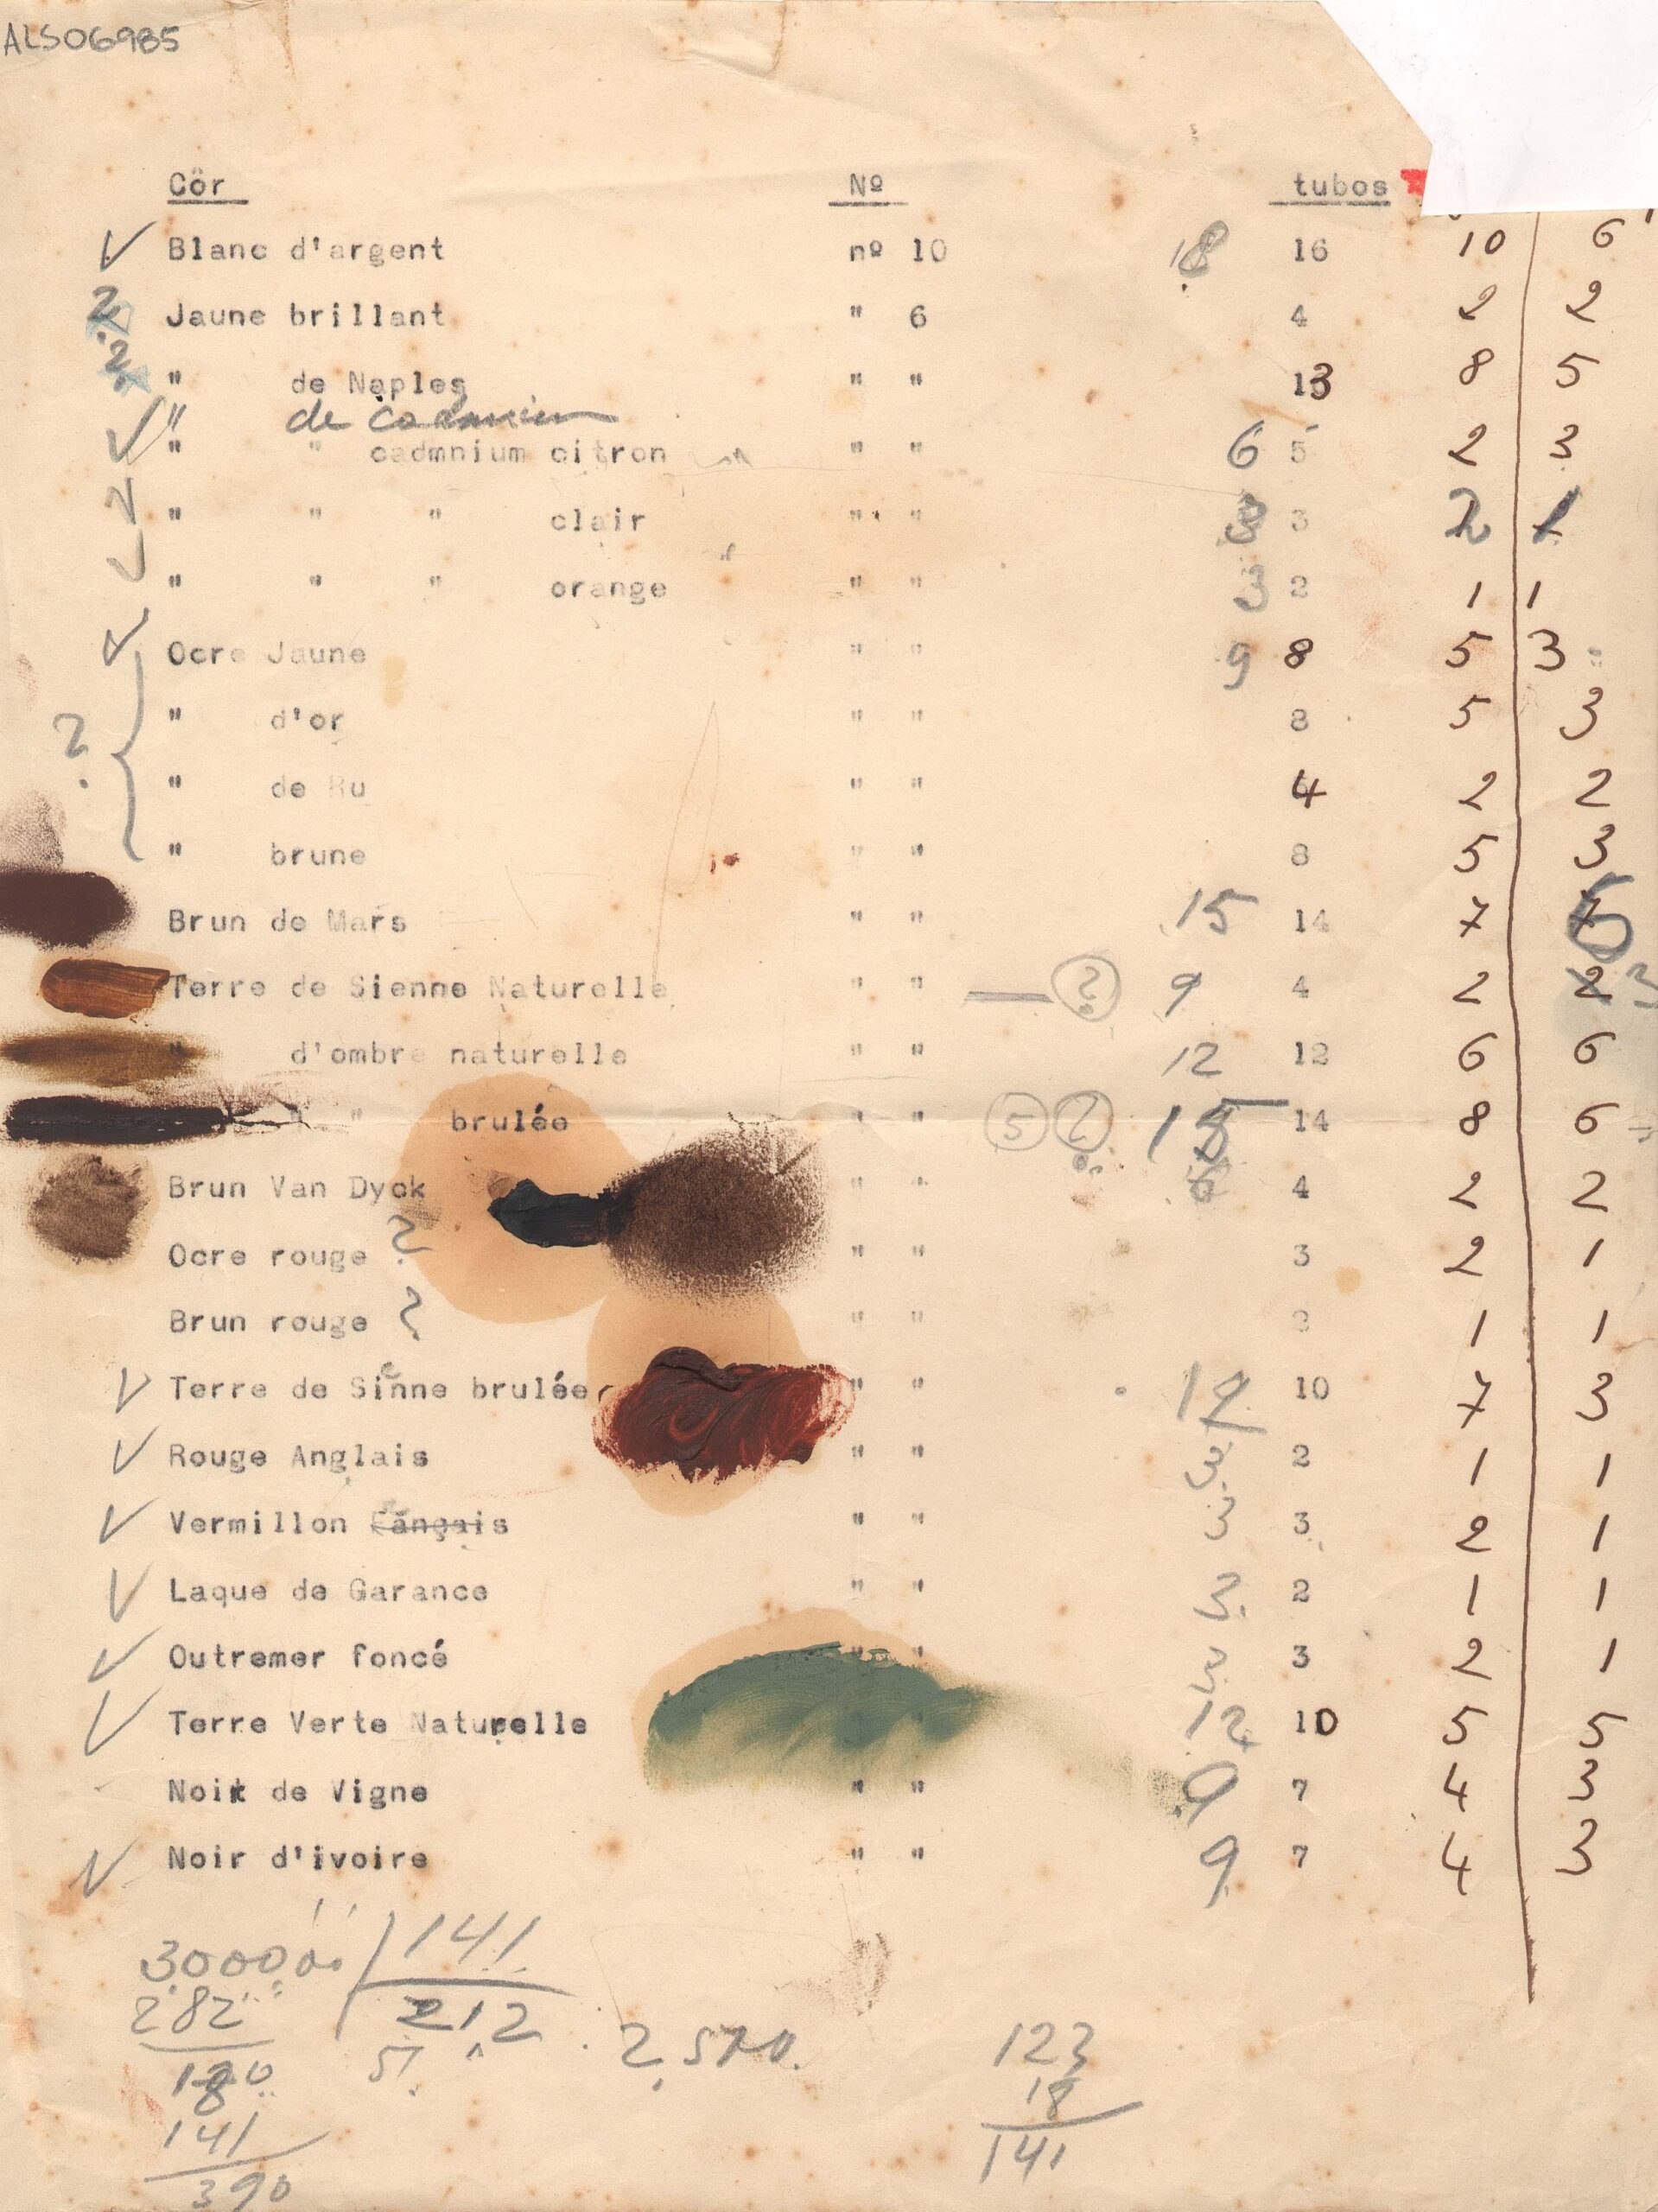 ALS06985
Côr Nº tubos
Blanc d'argent nº 10 18 16 10 6
? Jaune brillant " 6 4 2 2
? " de Naples " " 13 8 5
" de cadmium
" " cadmnium citron " " 6 5 2 3
" " " clair " " 3 3 2 1
" " " orange " " 3 2 1 1
Ocre Jaune " " 9 8 5 3
" d'or " " 8 5 3
? " de Ru " " 4 2 2
" brune " " 8 5 3
Brun de Mars " " 15 14 7
Terre de Sienne Naturelle " " — ? 9 4 2 2 3
" d'ombre naturelle " " 12 12 6 6
" brulée " " 5 ? 15 14 8 6
Brun Van Dyck " " 4 2 2
Ocre rouge ? " " 3 2 1
Brun rouge ? " " 2 1 1
Terre de Sinne brulée " " 10 7 3
e
Rouge Anglais " " 3 2 1 1
Vermillon Fançais " " 3 3 2 1
Laque de Garance " " 3 2 1 1
Outremer foncé " " 3 3 2 1
Terre Verte Naturelle " " 12 10 5 5
Noir de Vigne " " 9 7 4 3
Noir d'ivoire " " 9 7 4 3
141
282 212
51 123
180 18
141 141
390